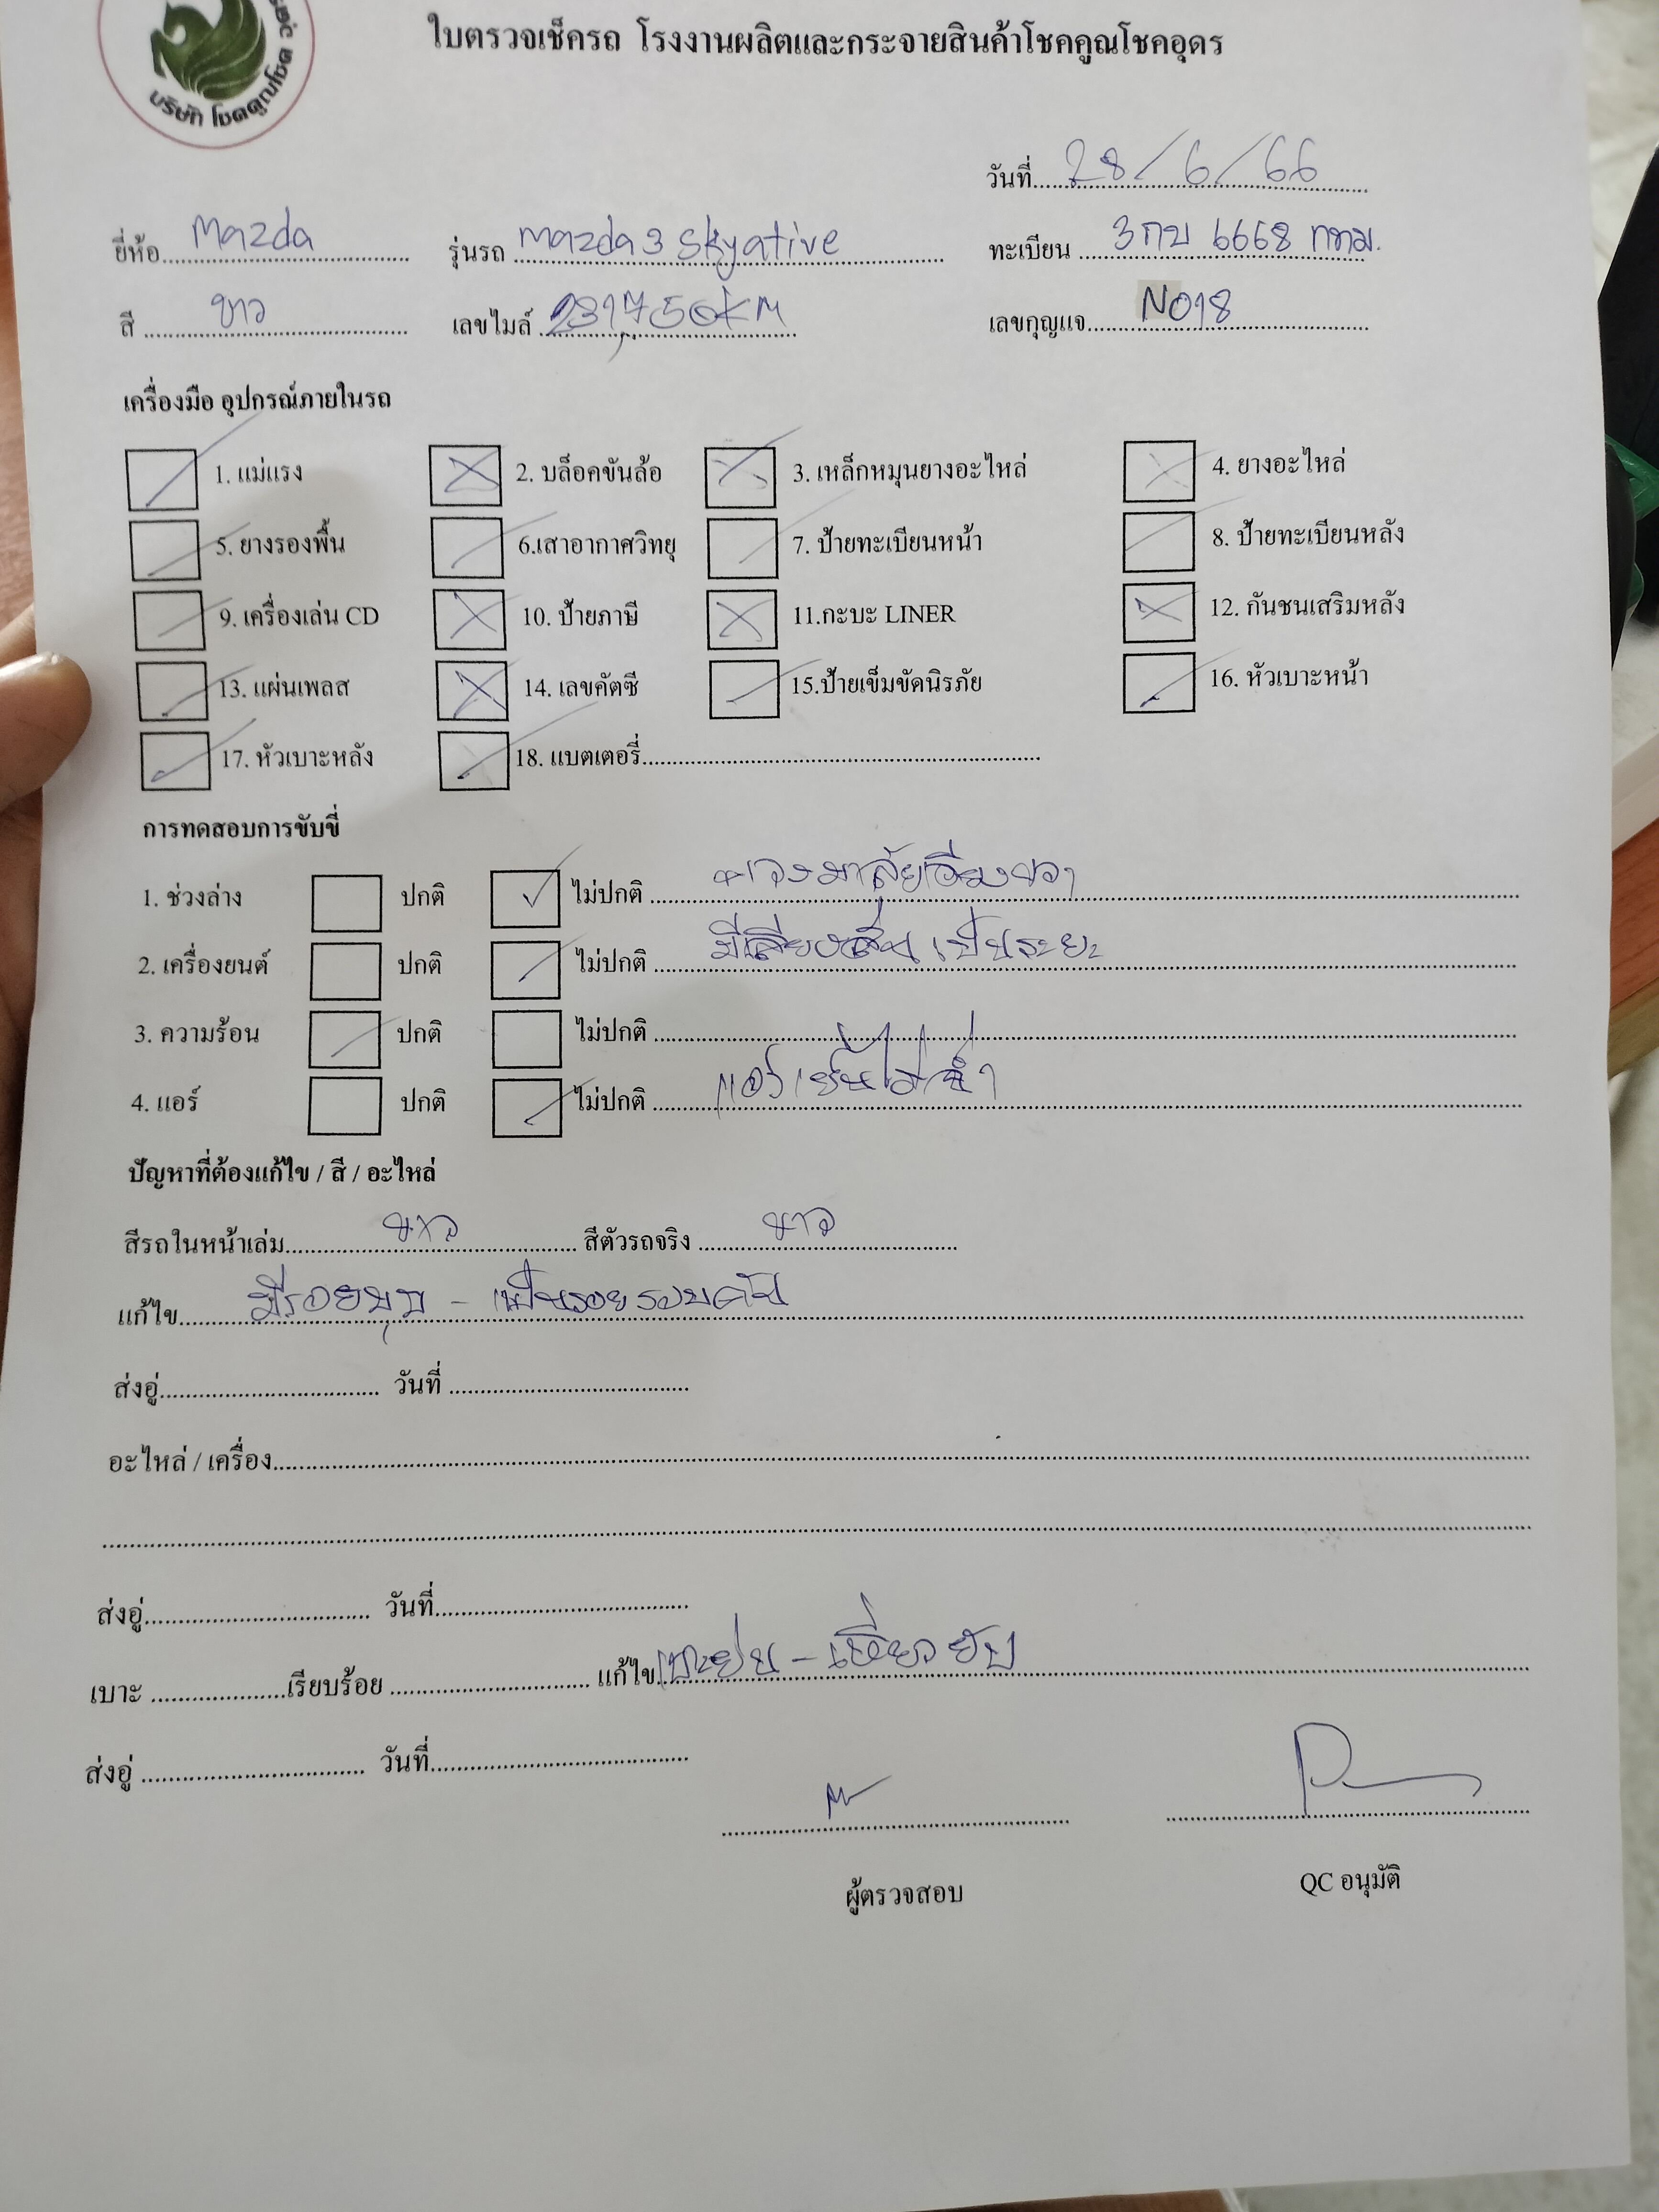 บริษัท โชคคูณโชค
ใบตรวจเช็ครถ โรงงานผลิตและกระจายสินค้าโชคคูณโชคอุดร
วันที่ 28/6/66
ยี่ห้อ Mazda รุ่นรถ mazda3 Skyative ทะเบียน 3กบ 6668 กทม.
สี ขาว เลขไมล์ 231,750KM เลขกุญแจ NO18
เครื่องมือ อุปกรณ์ภายในรถ
1. แม่แรง 2. บล็อคขันล้อ 3. เหล็กหมุนยางอะไหล่ 4. ยางอะไหล่
5. ยางรองพื้น 6.เสาอากาศวิทยุ 7. ป้ายทะเบียนหน้า 8. ป้ายทะเบียนหลัง
9. เครื่องเล่น CD 10. ป้ายภาษี 11.กะบะ LINER 12. กันชนเสริมหลัง
13. แผ่นเพลส 14. เลขคัตซี 15.ป้ายเข็มขัดนิรภัย 16. หัวเบาะหน้า
17. หัวเบาะหลัง 18. แบตเตอรี่
การทดสอบการขับขี่
1. ช่วงล่าง ปกติ ไม่ปกติ พวงมาลัยเอียงขวา
2. เครื่องยนต์ ปกติ ไม่ปกติ มีเสียงสั่น เป็นระยะ
3. ความร้อน ปกติ ไม่ปกติ
4. แอร์ ปกติ ไม่ปกติ แอร์เย็นไม่ฉ่ำ
ปัญหาที่ต้องแก้ไข / สี / อะไหล่
สีรถในหน้าเล่ม ขาว สีตัวรถจริง ขาว
แก้ไข มีรอยบุบ - เป็นรอยรอบคัน
ส่งอู่ วันที่
อะไหล่ / เครื่อง
ส่งอู่ วันที่
เบาะ เรียบร้อย แก้ไข เบาะย่น - เหี่ยวยับ
ส่งอู่ วันที่
ผู้ตรวจสอบ QC อนุมัติ